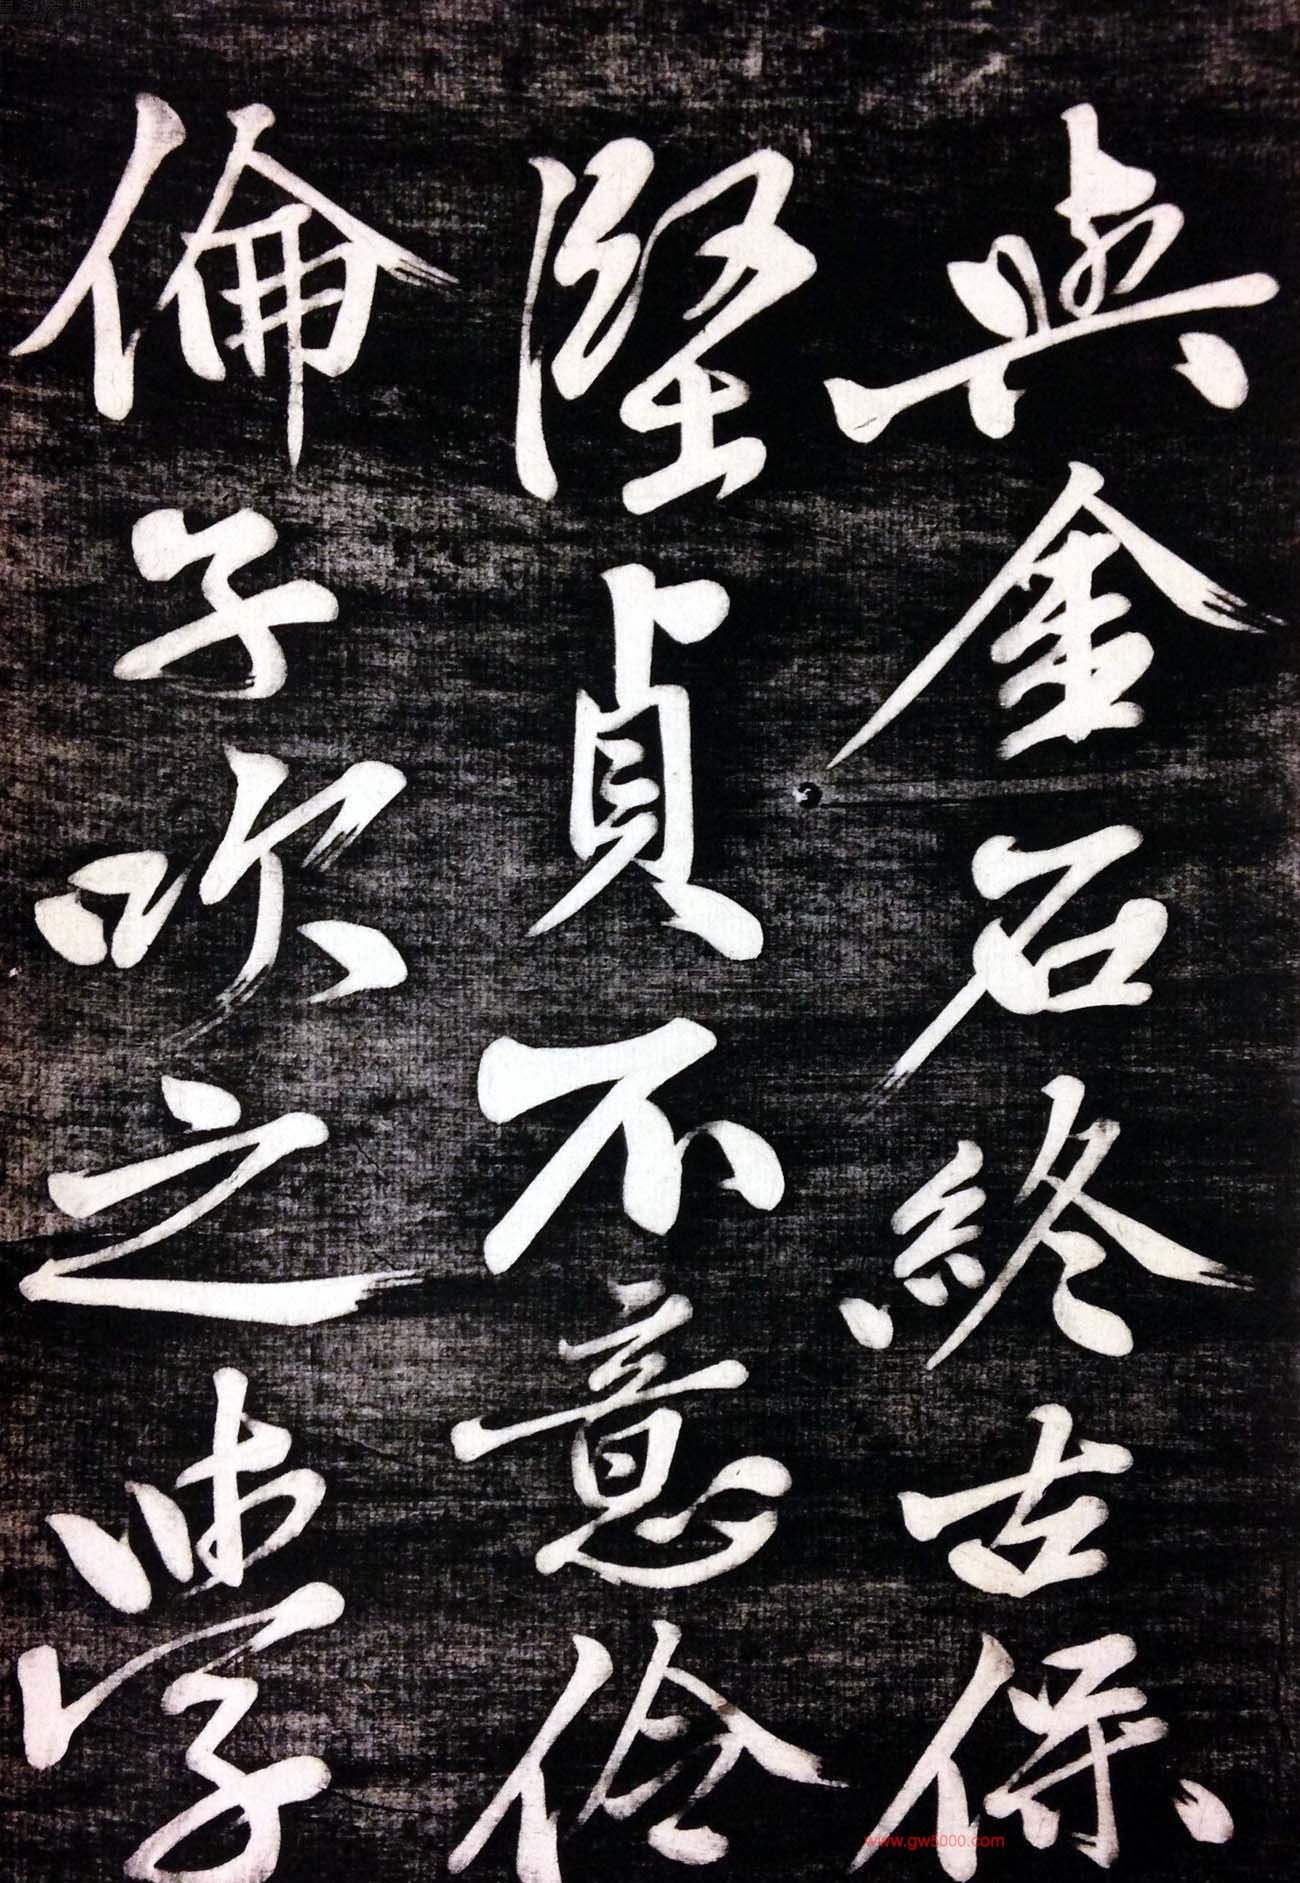 與金石終古保
堅貞不意伶
倫子吹之學
www.gw5000.com